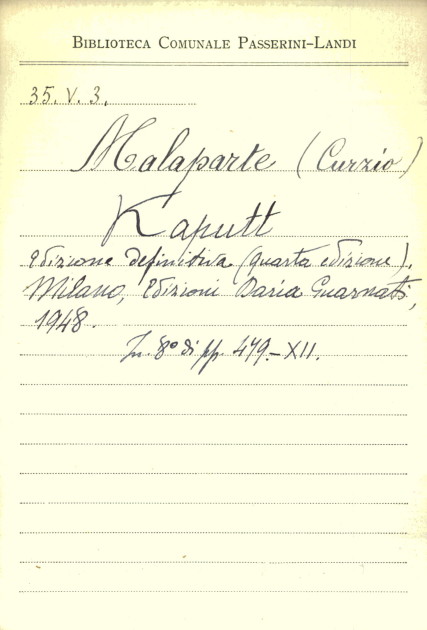 BIBLIOTECA COMUNALE PASSERINI-LANDI
35. V. 3.
Malaparte (Curzio)
Kaputt
Edizione definitiva (quarta edizione).
Milano, Edizioni Daria Guarnati,
1948.
In. 8º di pp. 479.-XII.